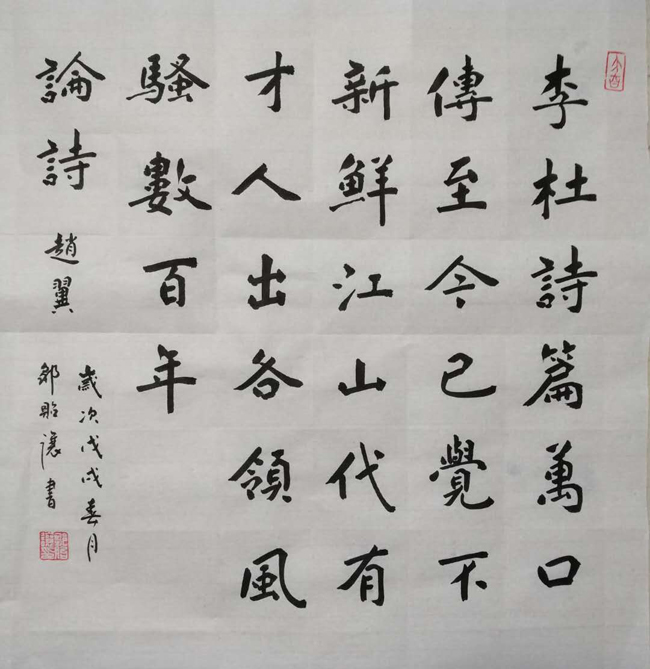 李杜詩篇萬口
傳至今已覺不
新鮮江山代有
才人出各領風
騷數百年
論詩 趙翼
歲次戊戌春月
鄒貽讓書